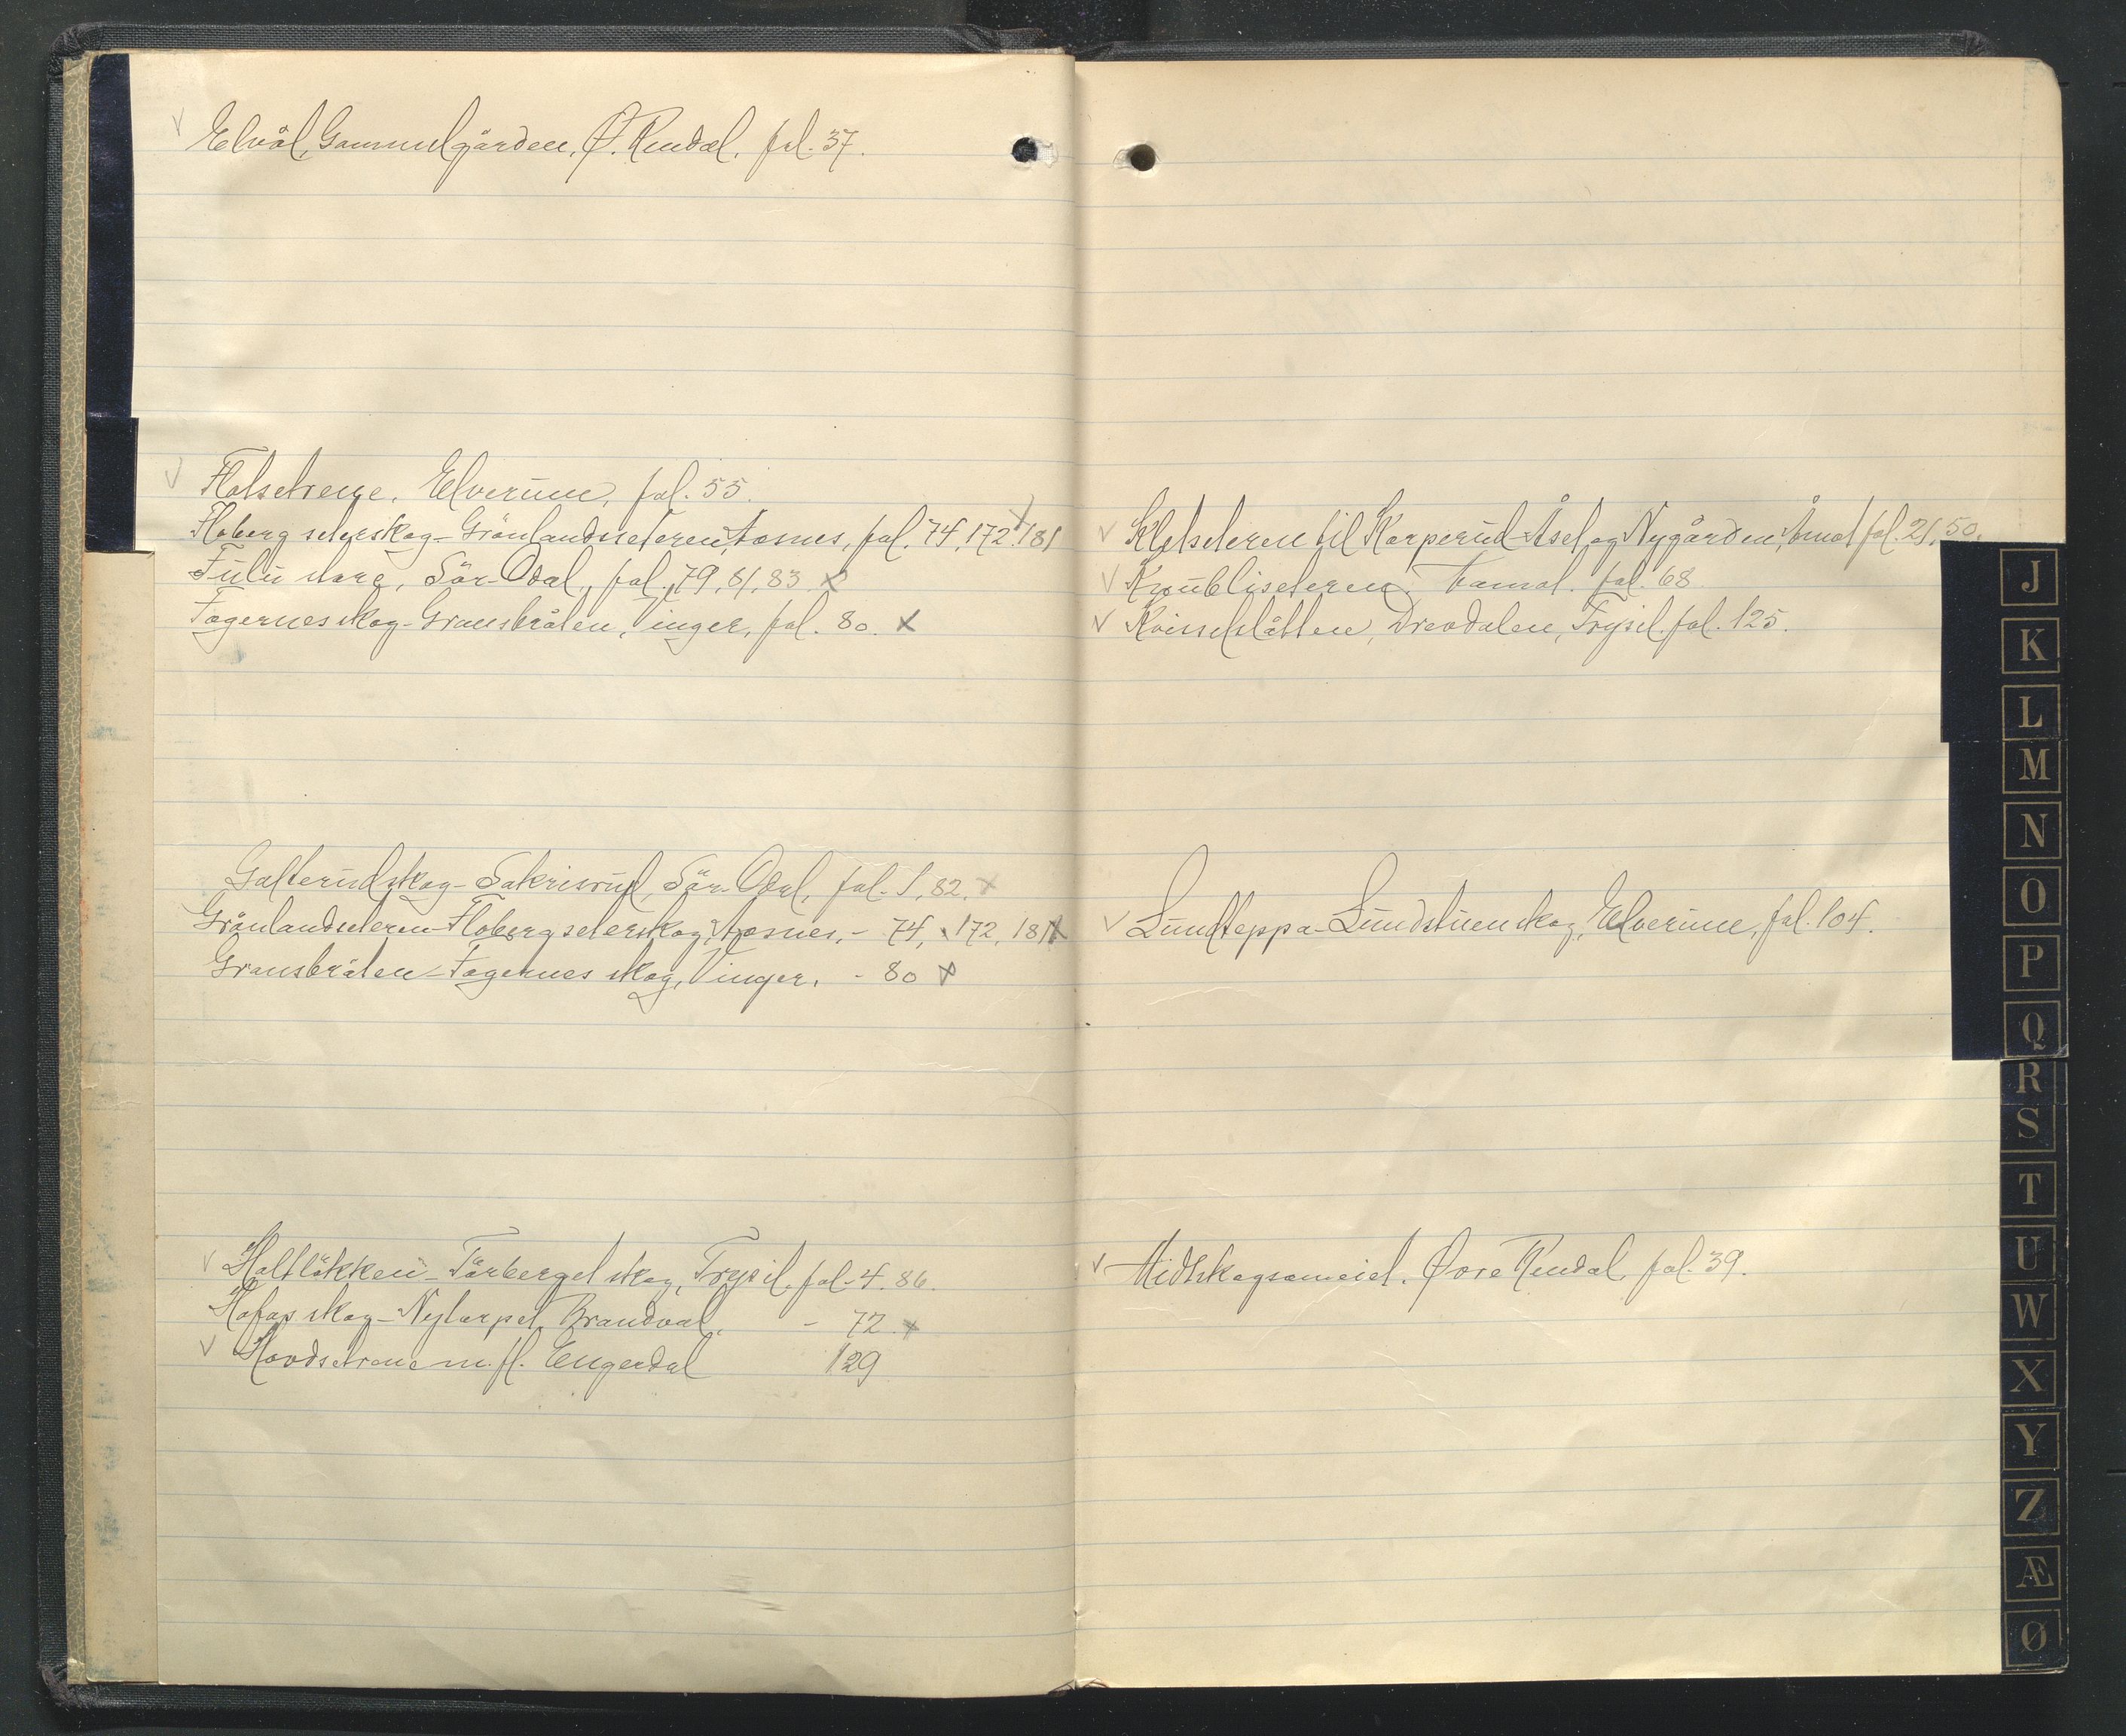 Elvål, Gammelgården, Ø. Rendal, fol. 37.
Flatsetrene, Elverum, fol. 55.
Floberg seterskog - Grönlandseteren, Aasnes, fol. 74, 172, 181
Fulu skog, Sör-Odal, fol. 79, 81, 83 x
Fagernes skog - Gransbråten, Vinger, fol. 80. x
Galterudskog - Sakrisrud, Sör-Odal, fol. 1, 82. x
Grönlandseteren - Floberg seterskog, Aasnes, - 74, 172, 181 x
Gransbråten - Fagernes skog, Vinger. - 80 x
Haltløkken - Törberget skog, Trysil, fol. 4. 86.
skog - Nytorpet, Brandval, - 72 x
Hovdsetrene m. fl. Engerdal 129
Kletseteren til Karperud - Åset og Nygården, Åmot fol. 21, 50.
Åamot. fol. 68
Kvisselslåtten, Drevdalen, Trysil. fol. 125.
Lundteppa - Lundstuen skog, Elverum, fol. 104.
Midtskogsameiet. Øvre Rendal, fol. 39.
J
K
L
M
N
O
P
Q
R
S
T
U
W
X
Y
Z
Æ
Ø